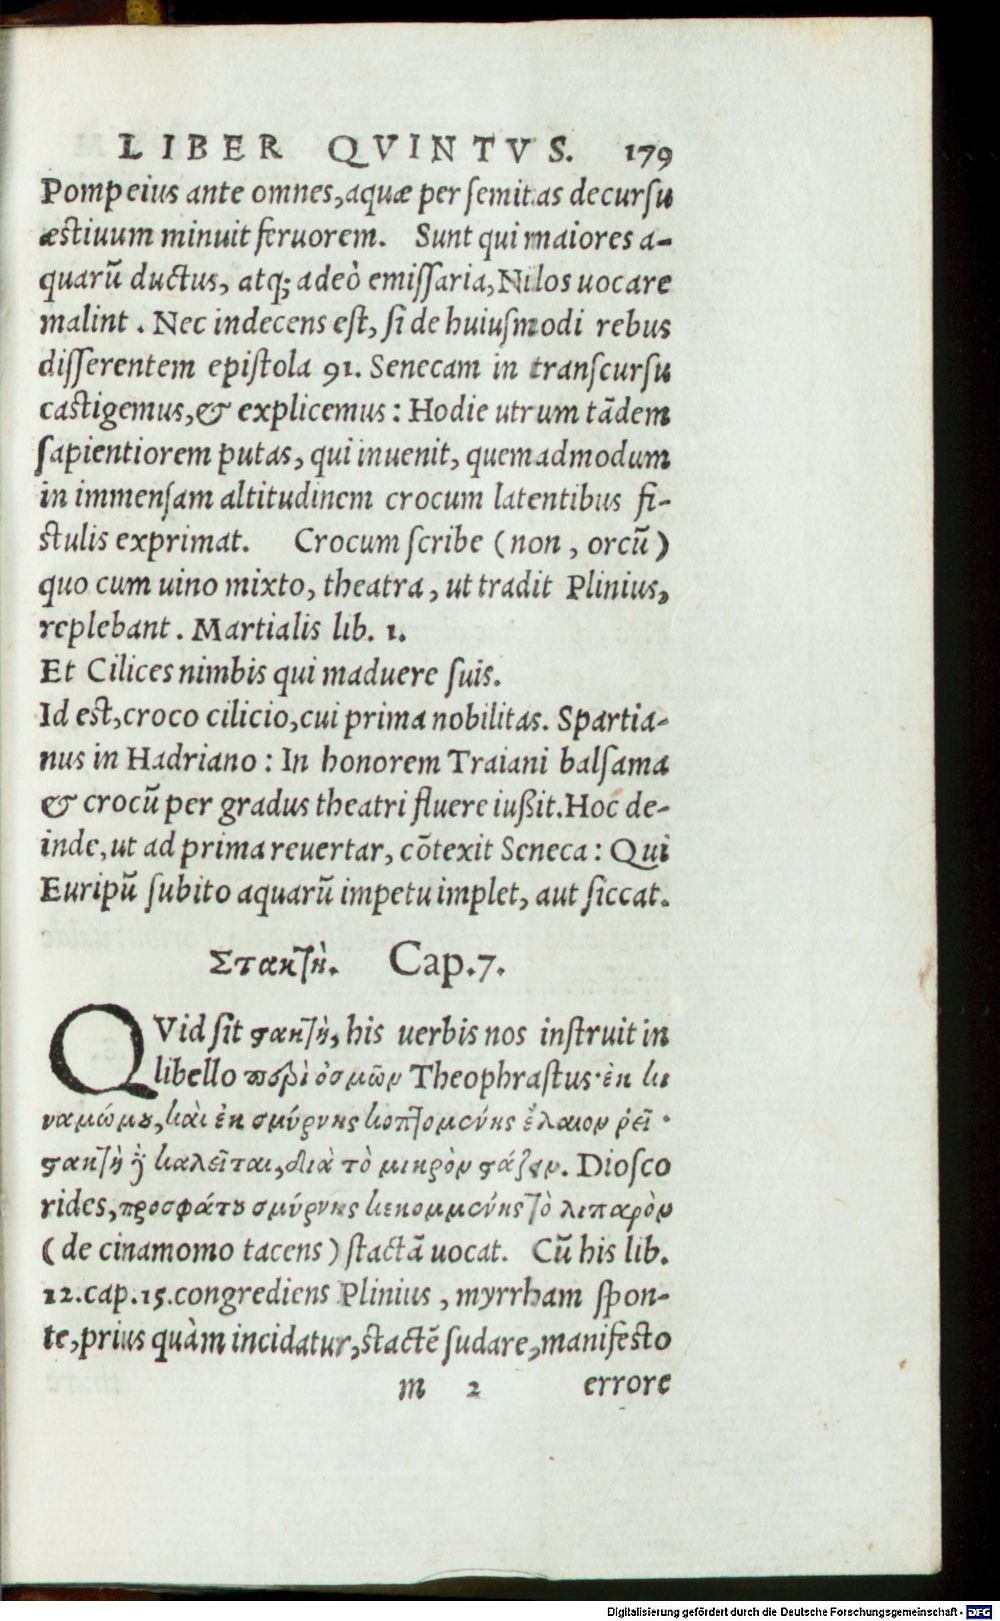 LIBER QVINTVS. 179
Pompeius ante omnes, aquæ per semitas decursu
æstiuum minuit feruorem. Sunt qui maiores a-
quarũ ductus, atq; adeò emissaria, Nilos uocare
malint. Nec indecens est, si de huiusmodi rebus
disserentem epistola 91. Senecam in transcursu
castigemus, & explicemus: Hodie utrum tãdem
sapientiorem putas, qui inuenit, quemadmodum
in immensam altitudinem crocum latentibus fi-
stulis exprimat. Crocum scribe (non, orcũ)
quo cum uino mixto, theatra, ut tradit Plinius,
replebant. Martialis lib. 1.
Et Cilices nimbis qui maduere suis.
Id est, croco cilicio, cui prima nobilitas. Spartia-
nus in Hadriano: In honorem Traiani balsama
& crocũ per gradus theatri fluere iußit. Hoc de-
inde, ut ad prima reuertar, cõtexit Seneca: Qui
Euripũ subito aquarũ impetu implet, aut siccat.
Στακτὴ. Cap. 7.
QVid sit στακτὴ, his uerbis nos instruit in
libello περὶ ὀσμῶν Theophrastus· ἐκ κι
ναμώμου, καὶ ἐκ σμύρνης κοπτομένης ἔλαιον ῥεῖ·
στακτὴ δὲ καλεῖται, διὰ τὸ μικρὸν στάζειν. Diosco
rides, προσφάτου σμύρνης κεκομμένης τὸ λιπαρὸν
(de cinamomo tacens) stactã uocat. Cũ his lib.
12. cap. 15. congrediens Plinius, myrrham spon-
te, prius quàm incidatur, stactẽ sudare, manifesto
m 2 errore
Digitalisierung gefördert durch die Deutsche Forschungsgemeinschaft - DFG